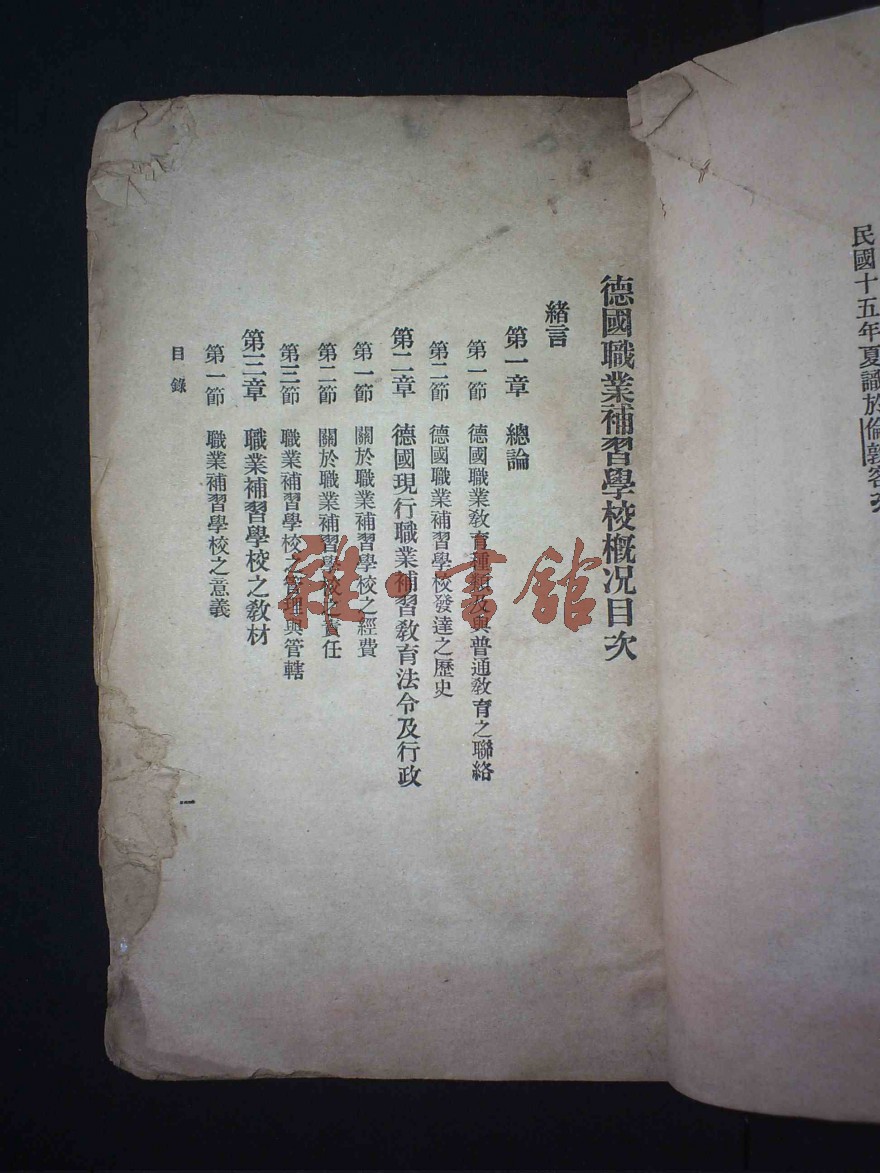 民國十五年夏識於倫敦客
德國職業補習學校概况目次
緒言
第一章　總論
第一節　德國職業教育種類及與普通教育之聯絡
第二節　德國職業補習學校發達之歷史
第二章　德國現行職業補習教育法令及行政
第一節　關於職業補習學校之經費
第二節　關於職業補習學校之責任
第三節　職業補習學校之管理與管轄
第三章　職業補習學校之教材
第一節　職業補習學校之意義
目錄
一
雜·書館